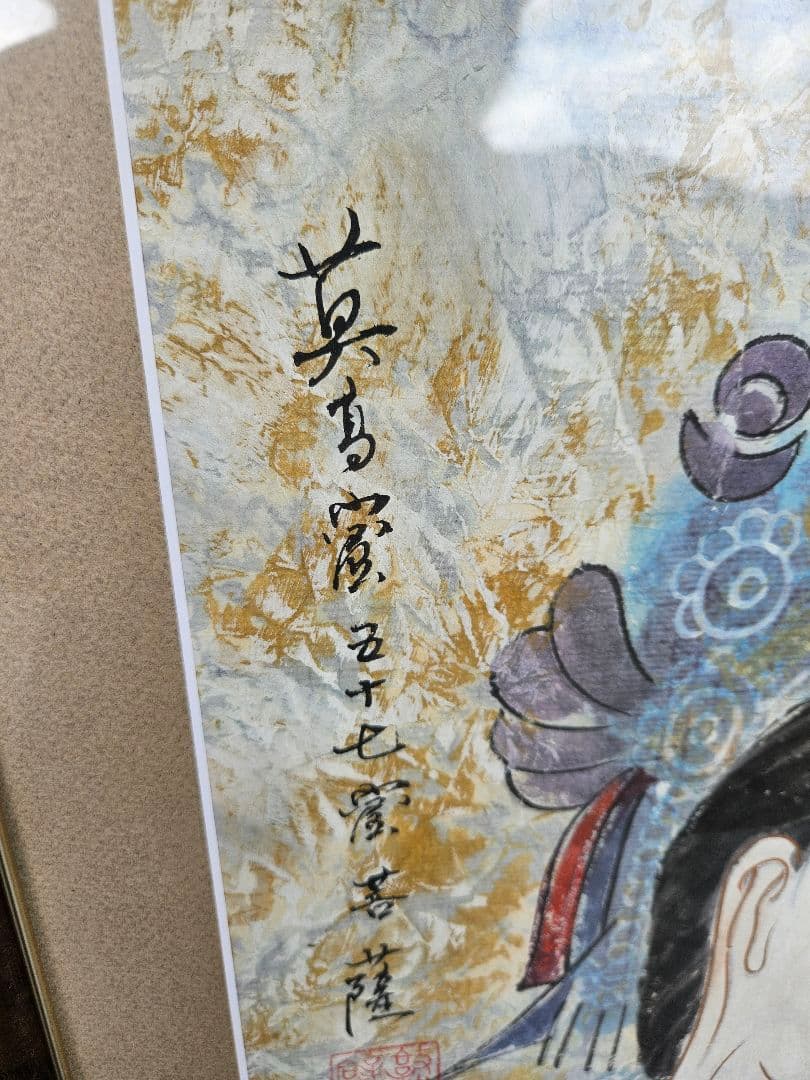 莫高窟五十七窟菩薩